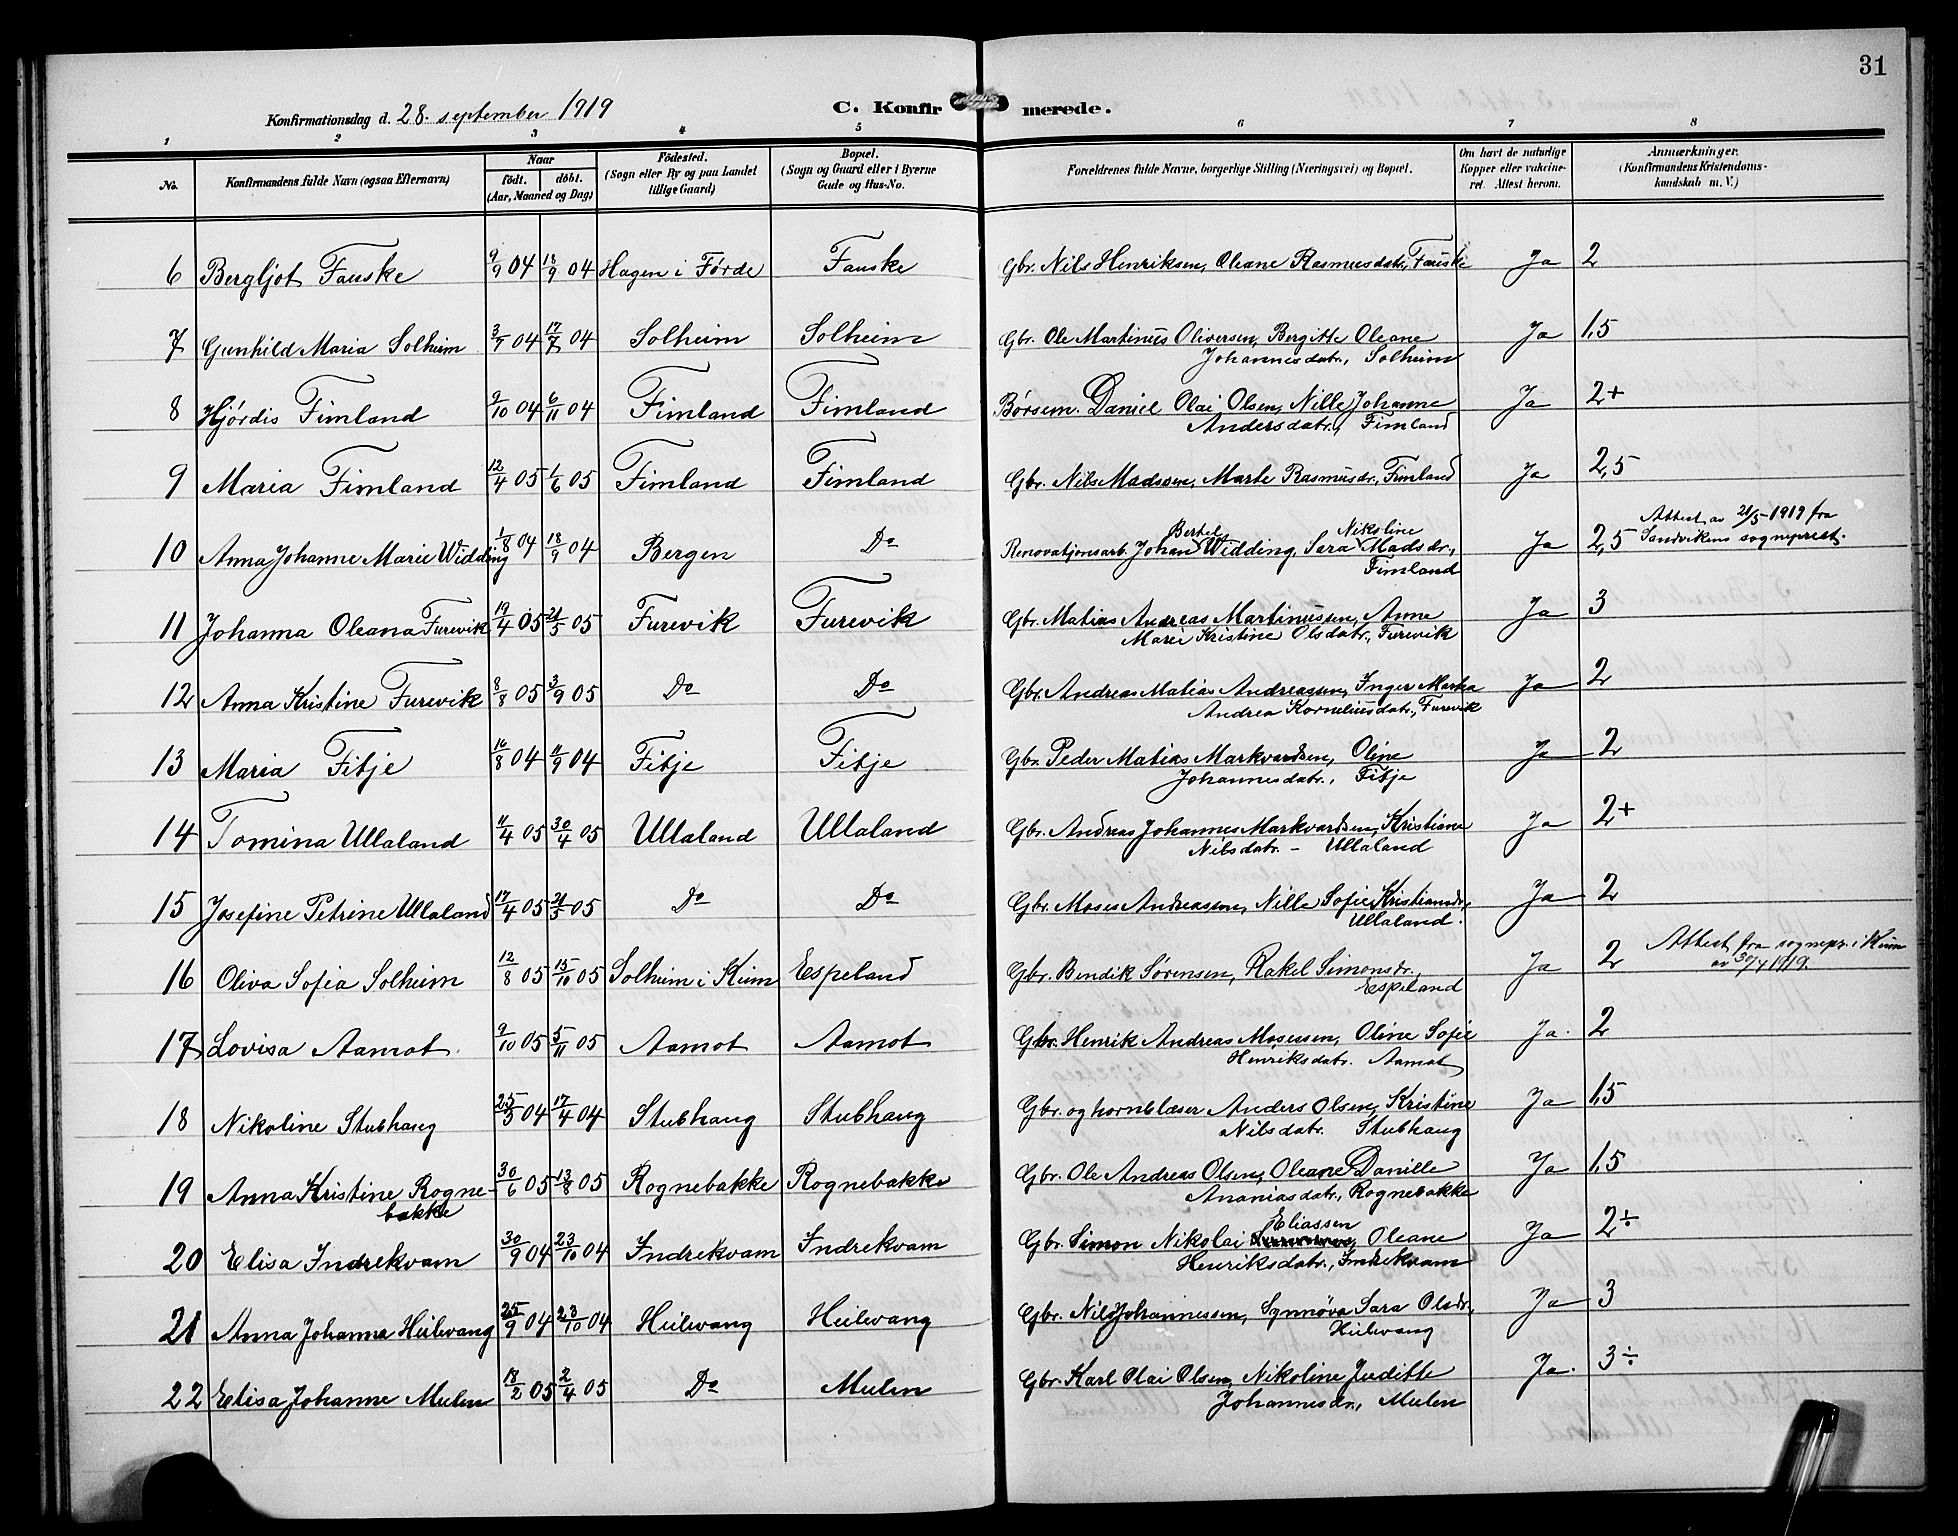 31
Konfirmationsdag d. 28. september 1919
C. Konfirmerede.
1 2 3 4 5 6 7 8
No. Konfirmandens fulde Navn (ogsaa Efternavn) Naar født. døbt. (Aar, Maaned og Dag) Fødested. (Sogn eller By og paa Landet tillige Gaard) Bopæl. (Sogn og Gaard eller i Byerne Gade og Hus-No. Forældrenes fulde Navne, borgerlige Stilling (Næringsvei) og Bopæl. Om havt de naturlige Kopper eller vakcineret. Attest herom. Anmærkninger. (Konfirmandens Kristendomskundskab m. V.)
6 Bergljot Fauske 9/9 04 18/9 04 Hagen i Førde Fauske Gbr. Nils Henriksen, Oleane Rasmusdatr., Fauske Ja 2
7 Gunhild Maria Solheim 3/7 04 17/7 04 Solheim Solheim Gbr. Ole Martinus Oliversen, Bergitte Oleane Ja 1,5
Johannesdatr., Solheim
8 Hjørdis Fimland 9/10 04 6/11 04 Fimland Fimland Børsem. Daniel Olai Olsen, Nille Johanne Ja 2+
Andersdatr., Fimland
9 Maria Fimland 12/4 05 1/6 05 Fimland Fimland Gbr. Nils Madssen, Marte Rasmusdr., Fimland Ja 2,5
10 Anna Johanne Marie Widding 1/8 04 18/9 04 Bergen Do Renovationsarb. Johan Bertel Widding, Sara Nikoline Madsdr., Ja 2,5 Attest av 21/5-1919 fra
Fimland Sandvikens sogneprest.
11 Johanna Oleana Furevik 19/4 05 21/5 05 Furevik Furevik Gbr. Matias Andreas Martinussen, Anne Ja 3
Marie Kristine Olsdatr., Furevik
12 Anna Kristine Furevik 8/8 05 3/9 05 Do Do Gbr. Andreas Matias Andreassen, Inger Marta Ja 2
Andrea Korneliusdatr., Furevik
13 Maria Fitje 16/8 04 11/9 04 Fitje Fitje Gbr. Peder Matias Markvardsen, Oline Ja 2
Johannesdatr., Fitje
14 Tomina Ullaland 11/4 05 30/4 05 Ullaland Ullaland Gbr. Andreas Johannes Markvardsen, Kristiane Ja 2+
Nilsdatr. - Ullaland
15 Josefine Petrine Ullaland 17/4 05 21/5 05 Do Do Gbr. Moses Andreasen, Nille Sofie Kristiansdr, Ja 2
Ullaland.
16 Oliva Sofia Solheim 12/8 05 15/10 05 Solheim i Kinn Espeland Gbr. Bendik Sørensen, Rakel Simonsdr., Ja 2 Attest fra sognepr. i Kinn
Espeland av 30/4 1919.
17 Lovisa Aamot 9/10 05 5/11 05 Aamot Aamot Gbr. Henrik Andreas Mosessen, Oline Sofie Ja. 2
Henriksdatr. Aamot
18 Nikoline Stubhaug 25/3 04 17/4 04 Stubhaug Stubhaug Gbr. og hornblæser Anders Olsen, Kristine Ja 1,5
Nilsdatr. Stubhaug
19 Anna Kristine Rogne- 30/6 05 13/8 05 Rognebakke Rognebakke Gbr. Ole Andreas Olsen, Oleane Danille Ja 1,5
bakke Ananiasdatr., Rognebakke
20 Elisa Indrekvam 30/9 04 23/10 04 Indrekvam Indrekvam Gbr. Simon Nikolai Eliassen Oleane Ja 2÷
Henriksdatr., Indrekvam
21 Anna Johanna Heilevang 25/9 04 23/10 04 Heilevang Heilevang Gbr. Nils Johannessen, Synnøva Sara Olsdr, Ja 3
Heilevang
22 Elisa Johanne Mulen 18/2 05 2/4 05 Do Mulen Gbr. Karl Olai Olsen, Nikoline Juditte Ja. 3÷
Johannesdr., Mulen